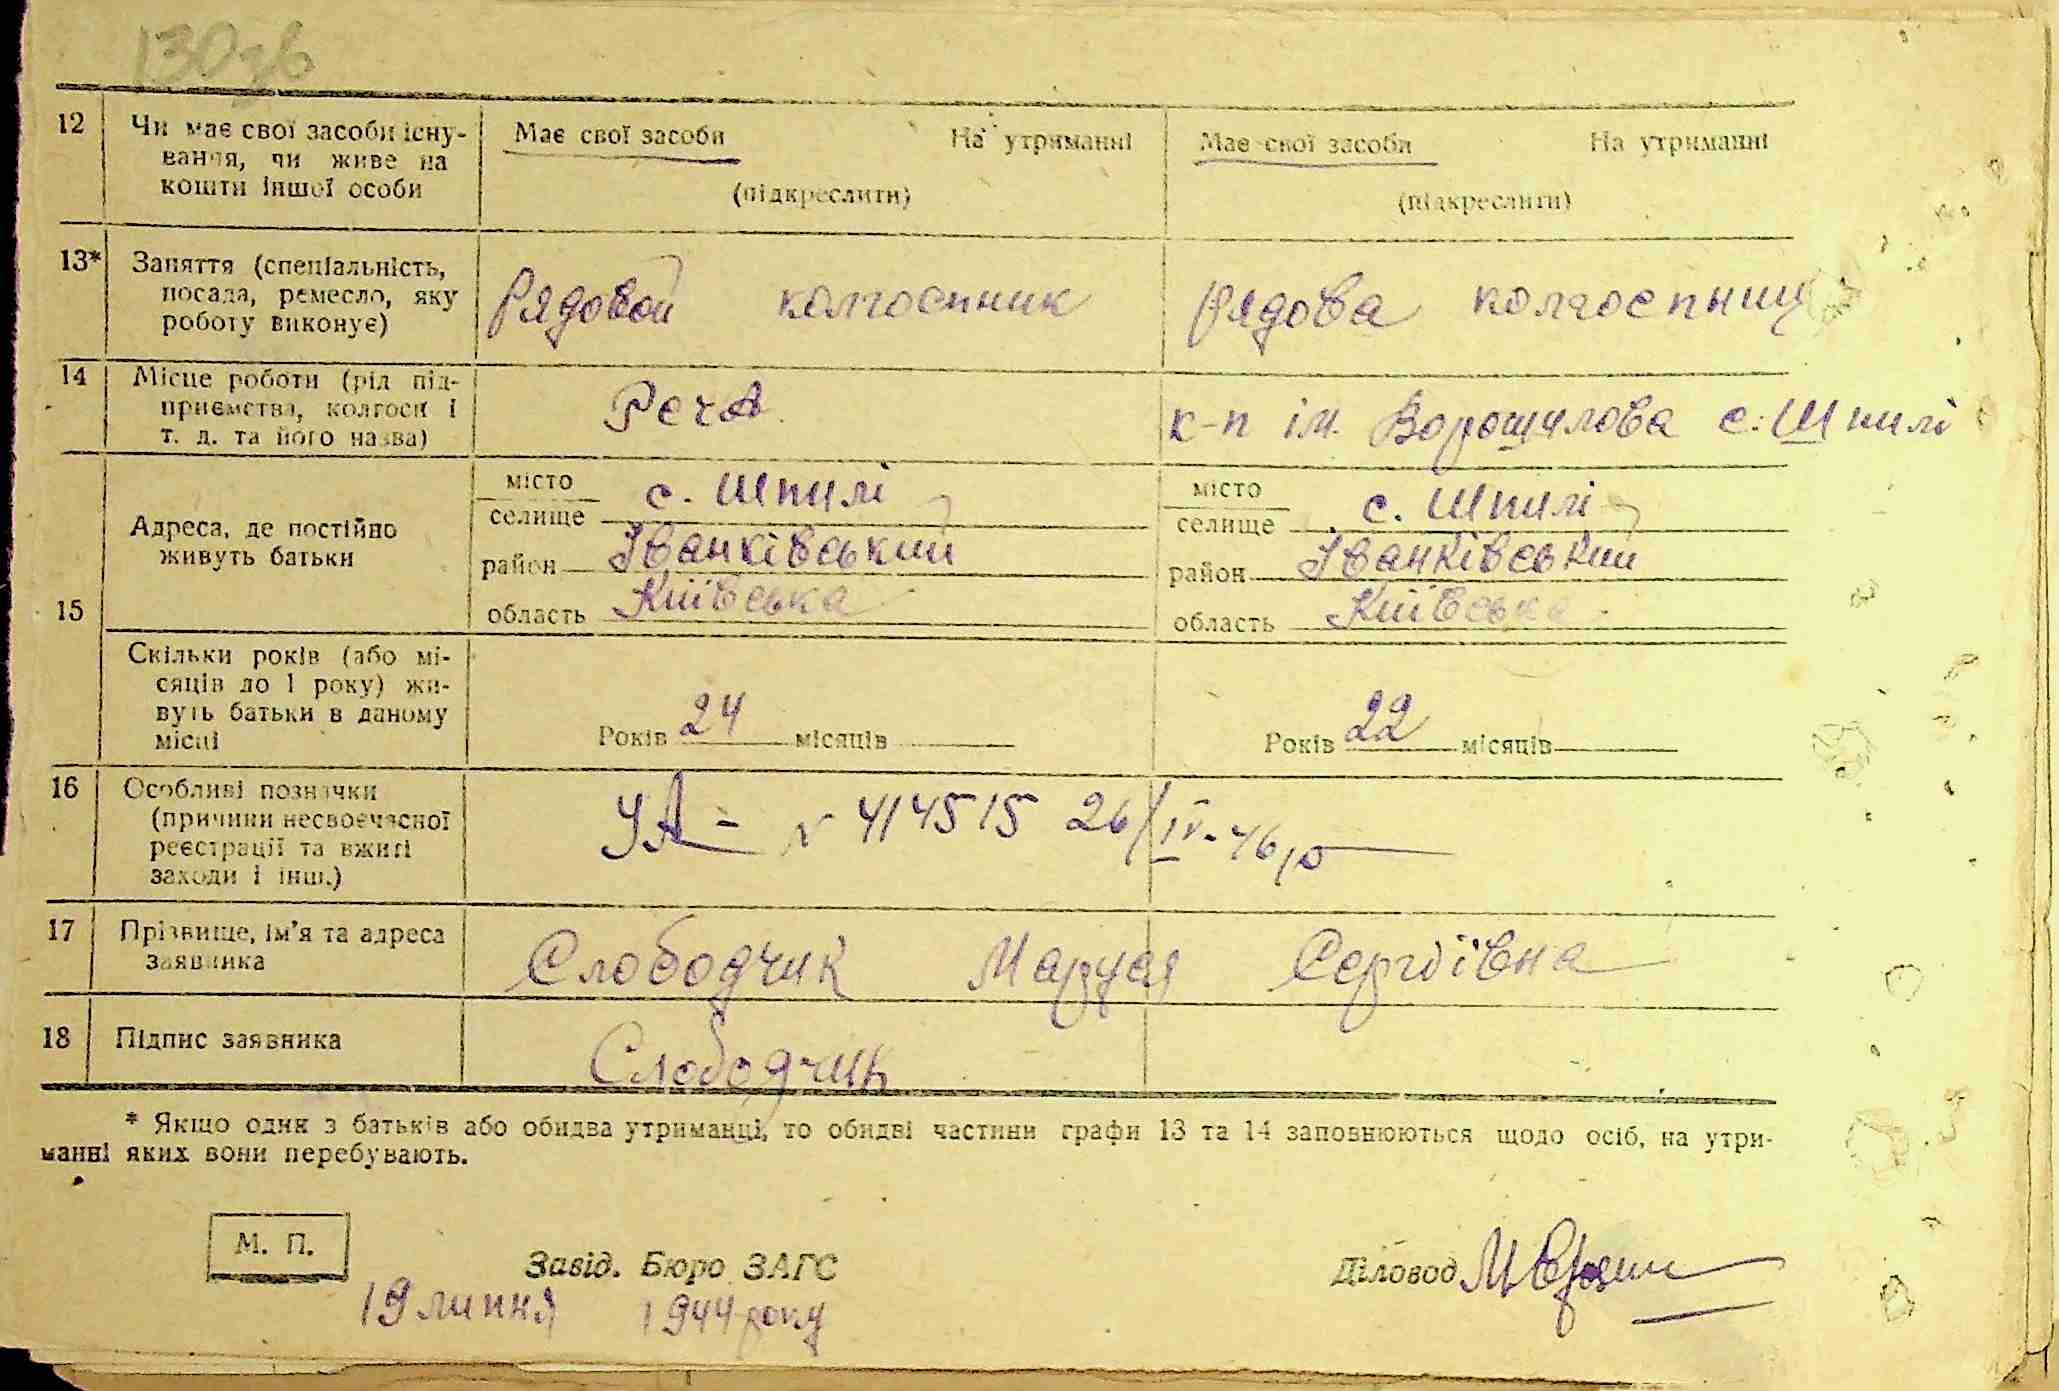 130зв
12 Чи має свої засоби існу- Має свої засоби На утриманні Має свої засоби На утриманні
вання, чи живе на
кошти іншої особи (підкреслити) (підкреслити)
13* Заняття (спеціальність,
посада, ремесло, яку рядовой колгоспник рядова колгоспниц
роботу виконує)
14 Місце роботи (рід під-
приємства, колгосп і РСЧА к-п ім. Ворошилова с. Шпилі
т. д. та його назва)
місто с. Шпилі місто с. Шпилі
Адреса, де постійно селище селище
живуть батьки район Іванківський район Іванківський
15 область Київська область Київська
Скільки років (або мі-
сяців до 1 року) жи-
вуть батьки в даному
місці Років 24 місяців Років 22 місяців
16 Особливі позначки
(причини несвоєчасної УА - № 414515 26/IV-46 р
реєстрації та вжиті
заходи і інш.)
17 Прізвище, ім'я та адреса
заявника Слободчик Маруся Сергіївна
18 Підпис заявника Слободчик
* Якщо один з батьків або обидва утриманці, то обидві частини графи 13 та 14 заповнюються щодо осіб, на утри-
манні яких вони перебувають.
М. П.
Завід. Бюро ЗАГС Діловод
19 липня 1944 року